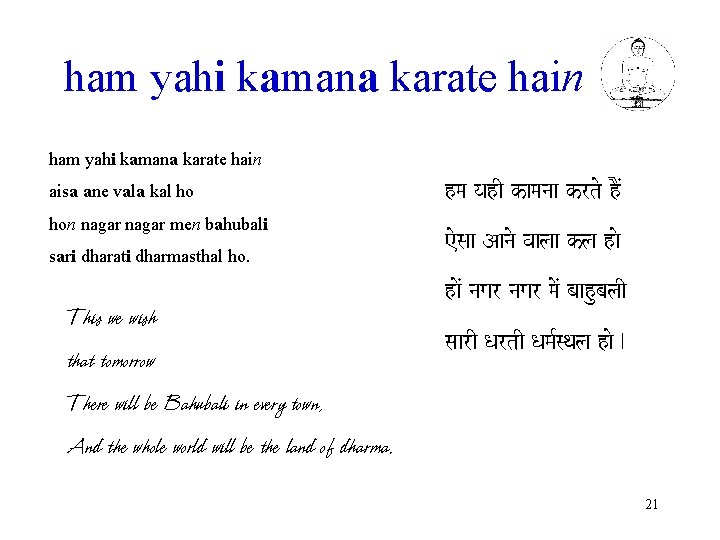 ham yahi kamana karate hain
ham yahi kamana karate hain
aisa ane vala kal ho
hon nagar nagar men bahubali
sari dharati dharmasthal ho.
हम यही कामना करते हैं
ऐसा आने वाला कल हो
हों नगर नगर में बाहुबली
सारी धरती धर्मस्थल हो |
This we wish
that tomorrow
There will be Bahubali in every town,
And the whole world will be the land of dharma.
21